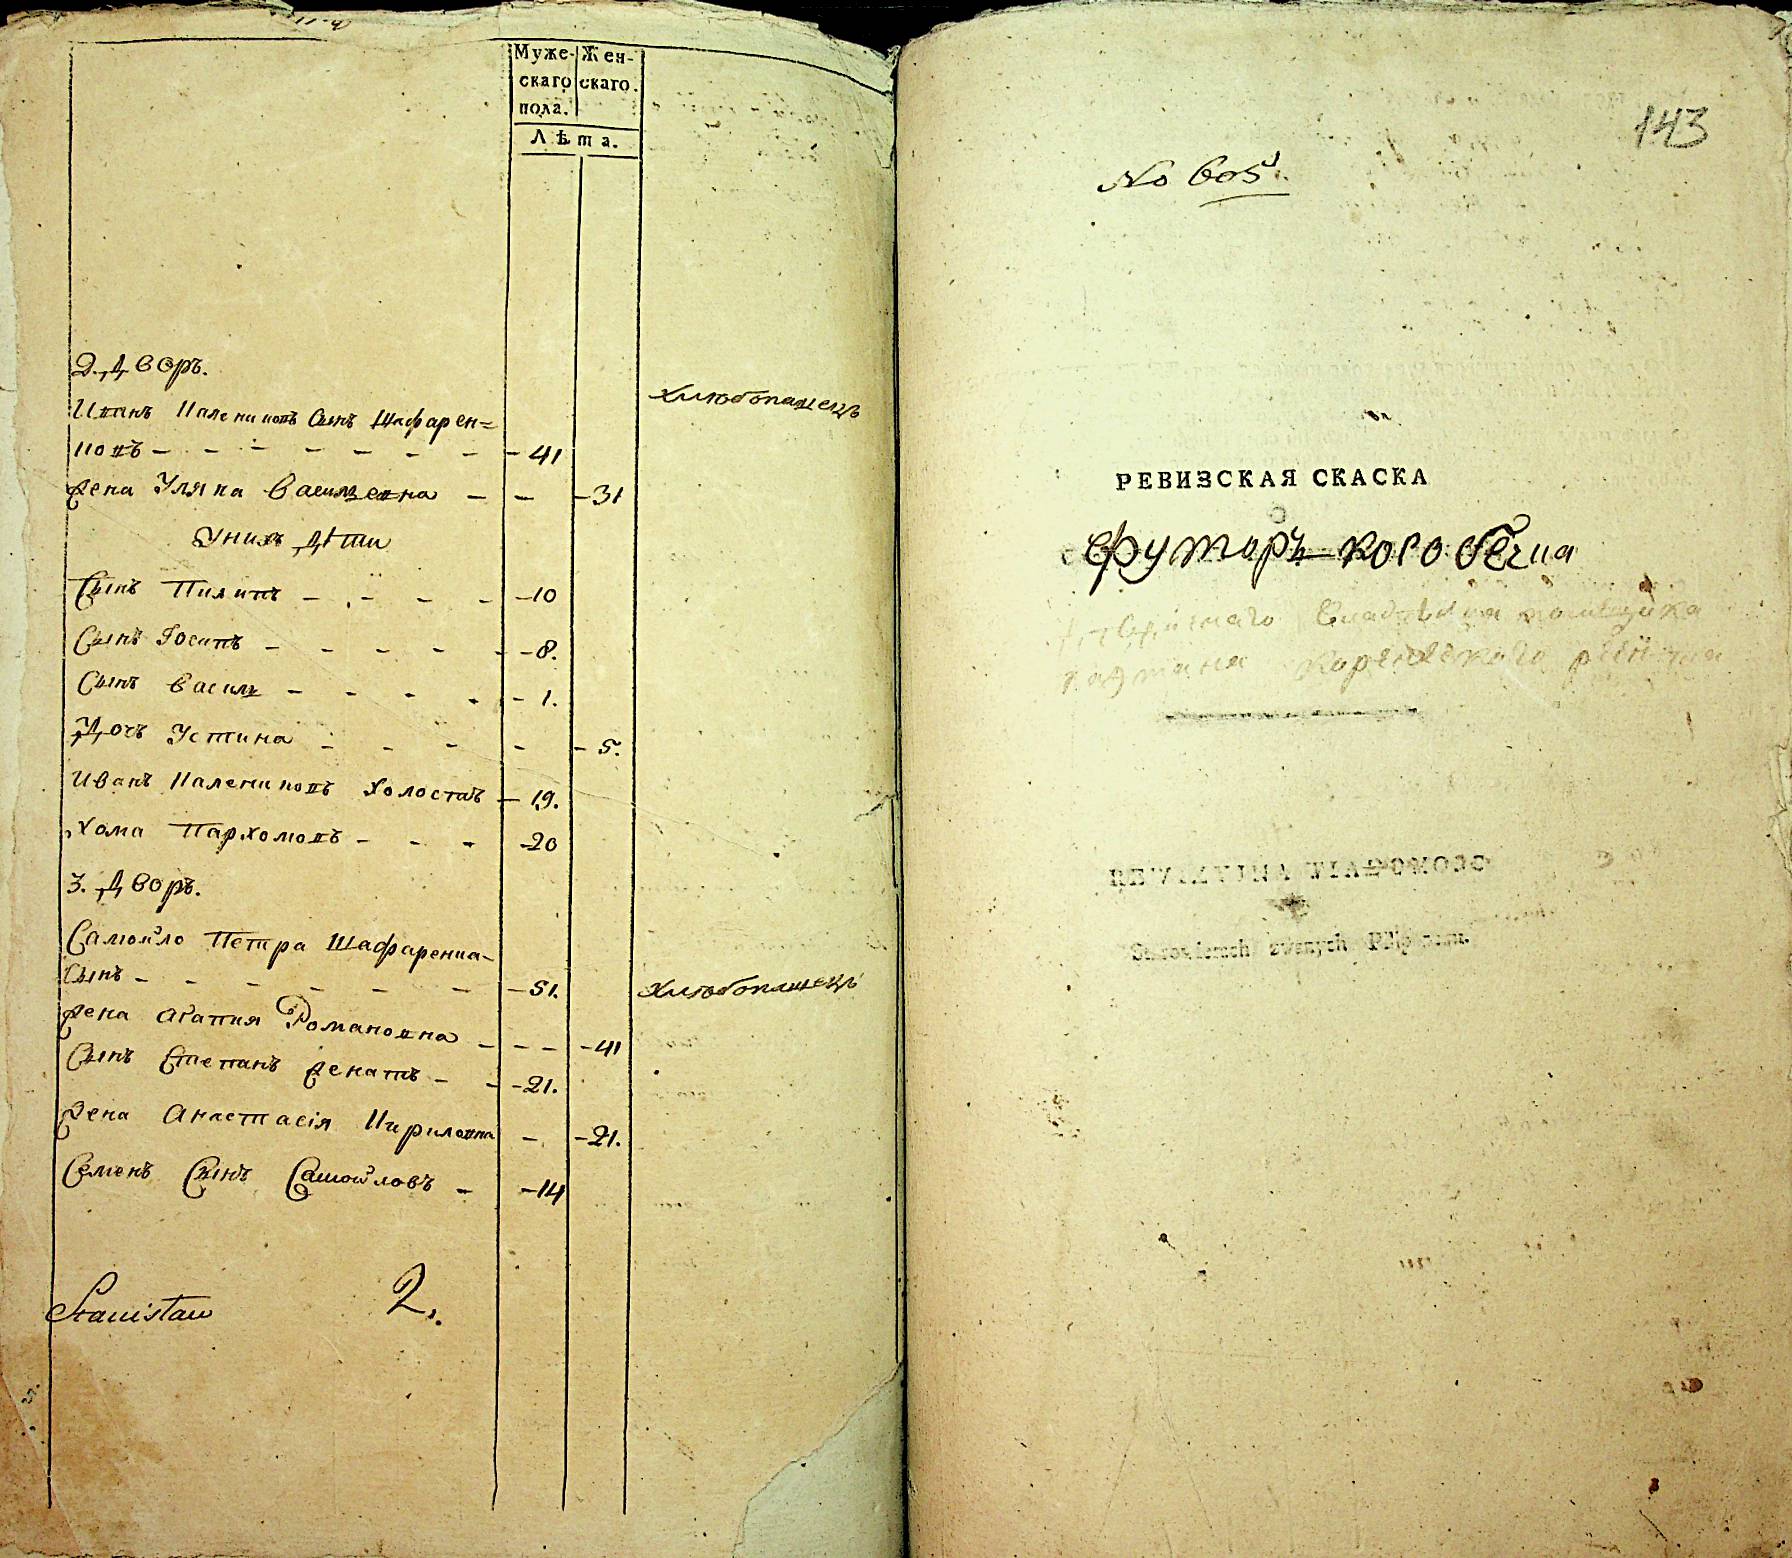 Муже- Жен-
скаго скаго.
пола.
Лѣта.
2. Дворъ.
хлѣбопашецъ
Иванъ Калениковъ Сынъ Шафарен-
ковъ - - - - - - - - 41
Жена Уляна Василевна - - - 31
У нихъ дѣти
Сынъ Пилипъ - - - - - 10
Сынъ Іосипъ - - - - - - 8.
Сынъ Василь - - - - - 1.
Дочъ Устина - - - - - 5.
Иванъ Калениковъ Холостъ - 19.
Хома Пархомовъ - - - 20
3. Дворъ.
Самойло Петра Шафаренка-
Сынъ - - - - - - - - 51. хлѣбопашецъ
Жена Агапия Романовна - - - - 41
Сынъ Степанъ Женатъ - - - 21.
Жена Анастасія Кириловна - - 21.
Семенъ Сынъ Самойловъ - - 14
Stanisław 2.
143
No
РЕВИЗСКАЯ СКАСКА
Футоръ